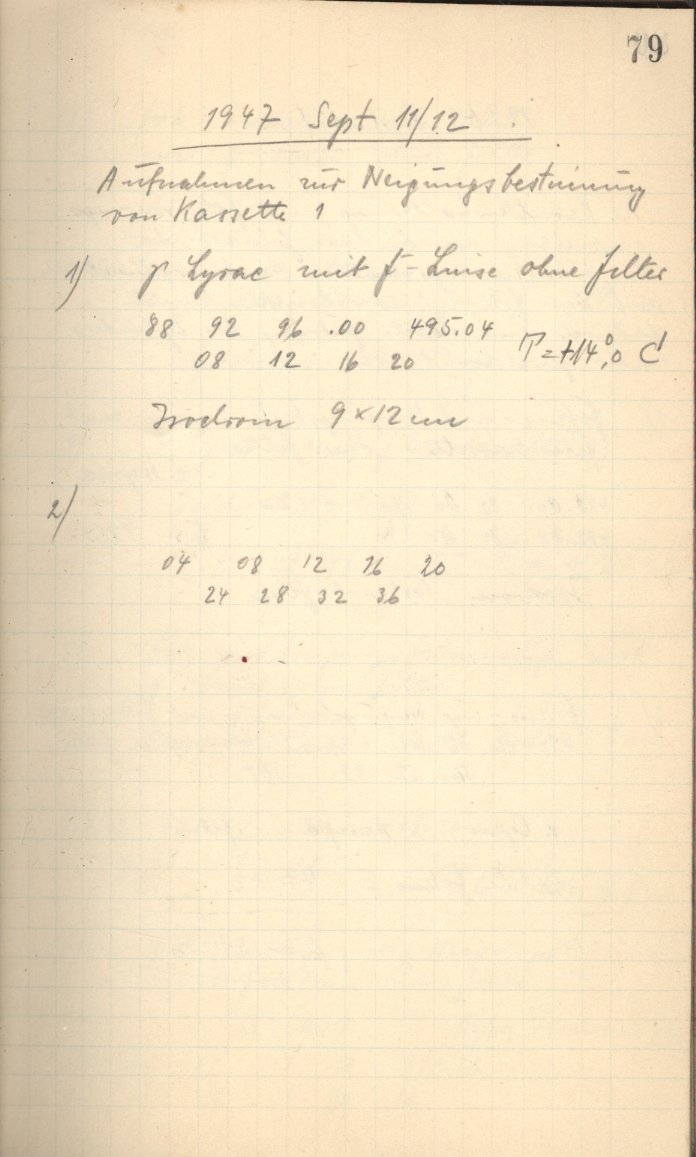 79
1947 Sept 11/12
Aufnahmen zur Neigungsbestimmung
von Kassette 1
1) γ Lyrae mit f-Linse ohne Filter
88 92 96 .00 495.04
08 12 16 20 T=+14°,0 C
Isochrom 9×12 cm
2)
04 08 12 16 20
24 28 32 36